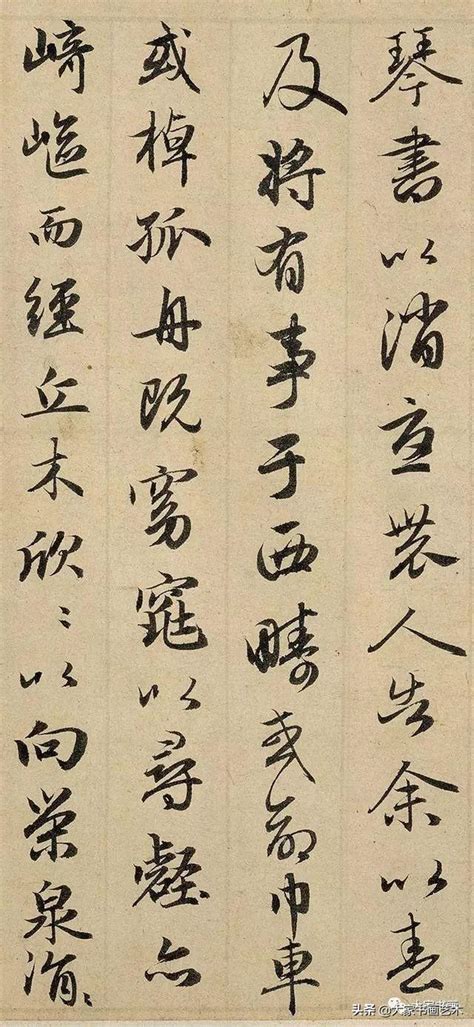 琴書以消憂農人告余以春
及將有事于西疇或命巾車
或棹孤舟既窈窕以尋壑亦
崎嶇而經丘木欣〻以向榮泉涓〻
头条 @大家书画艺术